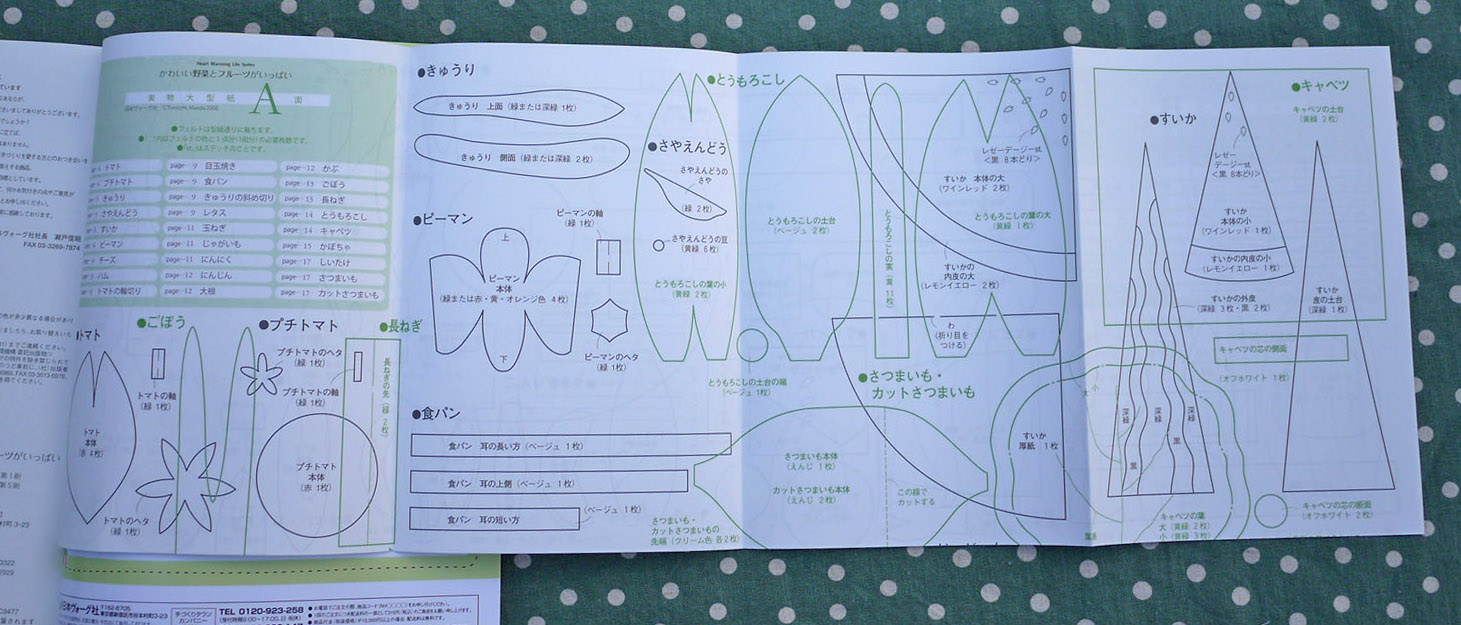 Heart Warming Life Series
かわいい野菜とフルーツがいっぱい
実物大型紙 A 面
●フェルトは型紙通りに裁ちます。
●( )内はフェルトの色と1点分(1組分)の必要枚数です。
●「st」はステッチのことです。
トマト
プチトマト
きゅうり
さやえんどう
すいか
ピーマン
チーズ
ハム
トマトの輪切り
page- 9 目玉焼き
page- 9 食パン
page- 9 きゅうりの斜め切り
page- 9 レタス
page-11 玉ねぎ
page-11 じゃがいも
page-11 にんにく
page-12 にんじん
page-12 大根
page-12 かぶ
page-13 ごぼう
page-13 長ねぎ
page-14 とうもろこし
page-14 キャベツ
page-15 かぼちゃ
page-17 しいたけ
page-17 さつまいも
page-17 カットさつまいも
トマト
トマト
本体
(赤 4枚)
トマトの軸
(緑 1枚)
トマトのヘタ
(緑 1枚)
●ごぼう
●プチトマト
プチトマトのヘタ
(緑 1枚)
プチトマトの軸
(緑 1枚)
プチトマト
本体
(赤 1枚)
●長ねぎ
長ねぎの先(緑 2枚)
●きゅうり
きゅうり 上面(緑または深緑 1枚)
きゅうり 側面(緑または深緑 2枚)
●ピーマン
上
ピーマン
本体
(緑または赤・黄・オレンジ色 4枚)
下
ピーマンの軸
(緑 1枚)
ピーマンのヘタ
(緑 1枚)
●食パン
食パン 耳の長い方(ベージュ 1枚)
食パン 耳の上側(ベージュ 1枚)
食パン 耳の短い方
(ベージュ 1枚)
●とうもろこし
●さやえんどう
さやえんどうの
さや
(緑 2枚)
さやえんどうの豆
(黄緑 6枚)
とうもろこしの葉の小
(黄緑 2枚)
とうもろこしの土台
(ベージュ 2枚)
とうもろこしの土台の端
(ベージュ 1枚)
とうもろこしの実(黄 11枚)
レゼーデージーst
<黒 8本どり>
すいか 本体の大
(ワインレッド 2枚)
とうもろこしの葉の大
(黄緑 1枚)
すいかの
内皮の大
(レモンイエロー 2枚)
わ
(折り目を
つける)
●さつまいも・
カットさつまいも
さつまいも本体
(えんじ 1枚)
カットさつまいも本体
(えんじ 2枚)
この線で
カットする
さつまいも・
カットさつまいもの
先端(クリーム色 各2枚)
すいか
厚紙 1枚
●すいか
レゼー
デージーst
<黒 8本どり>
すいか
本体の小
(ワインレッド 1枚)
すいかの内皮の小
(レモンイエロー 1枚)
すいかの外皮
(深緑 3枚・黒 2枚)
大
小
深緑
深緑
深緑
黒
黒
すいか
皮の土台
(深緑 1枚)
●キャベツ
キャベツの土台
(黄緑 2枚)
キャベツの芯の側面
(オフホワイト 1枚)
キャベツの葉
大(黄緑 2枚)
小(黄緑 3枚)
キャベツの芯の断面
(オフホワイト 2枚)
FAX 03-3269-7874
TEL 0120-923-258
手づくりタウン
カンパニー